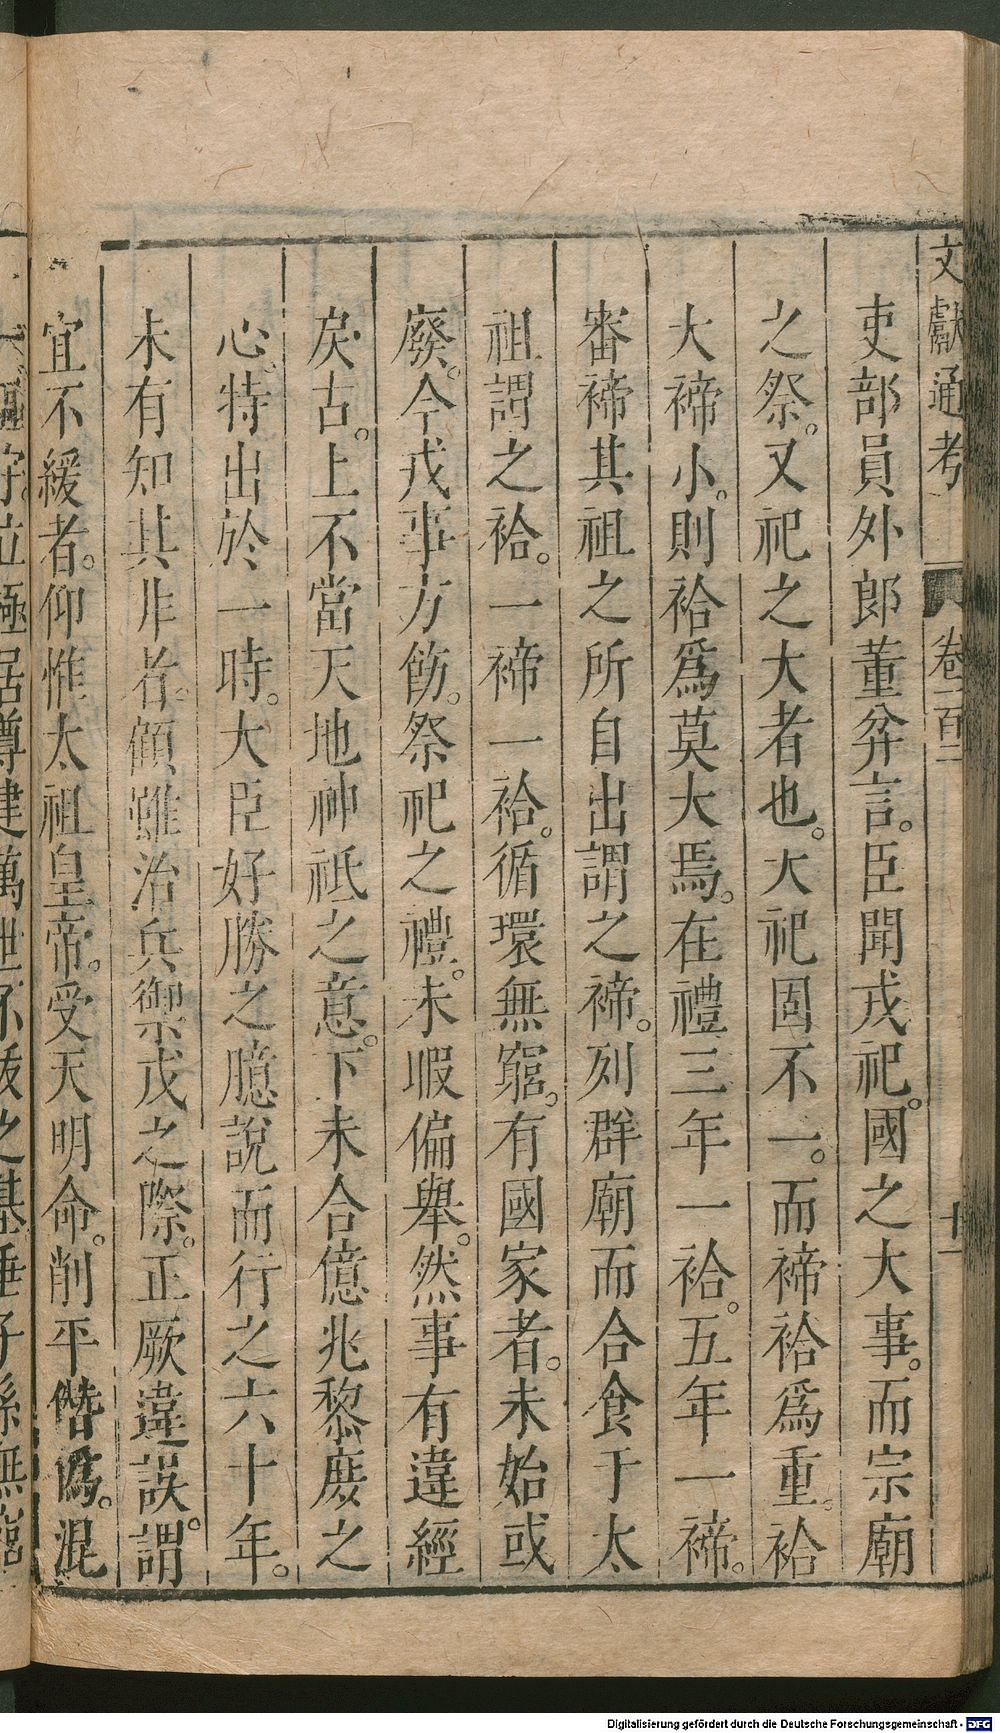 文獻通考 卷一百二 十一
吏部員外郎董弅言。臣聞戎祀。國之大事。而宗廟
之祭。又祀之大者也。大祀固不一。而禘祫爲重。祫
大禘小。則祫爲莫大焉。在禮三年一祫。五年一禘。
審禘其祖之所自出謂之禘。列群廟而合食于太
祖謂之祫。一禘一祫。循環無窮。有國家者。未始或
廢。今戎事方飭。祭祀之禮。未暇偏舉。然事有違經
戾古。上不當天地神祇之意。下未合億兆黎庶之
心。特出於一時。大臣好勝之臆說而行之六十年。
未有知其非者。顧雖治兵禦戎之際。正厥違誤。謂
宜不緩者。仰惟太祖皇帝。受天明命。削平僭僞。混
一區宇。立極居尊建萬世不拔之基垂子孫無窮
Digitalisierung gefördert durch die Deutsche Forschungsgemeinschaft - DFG